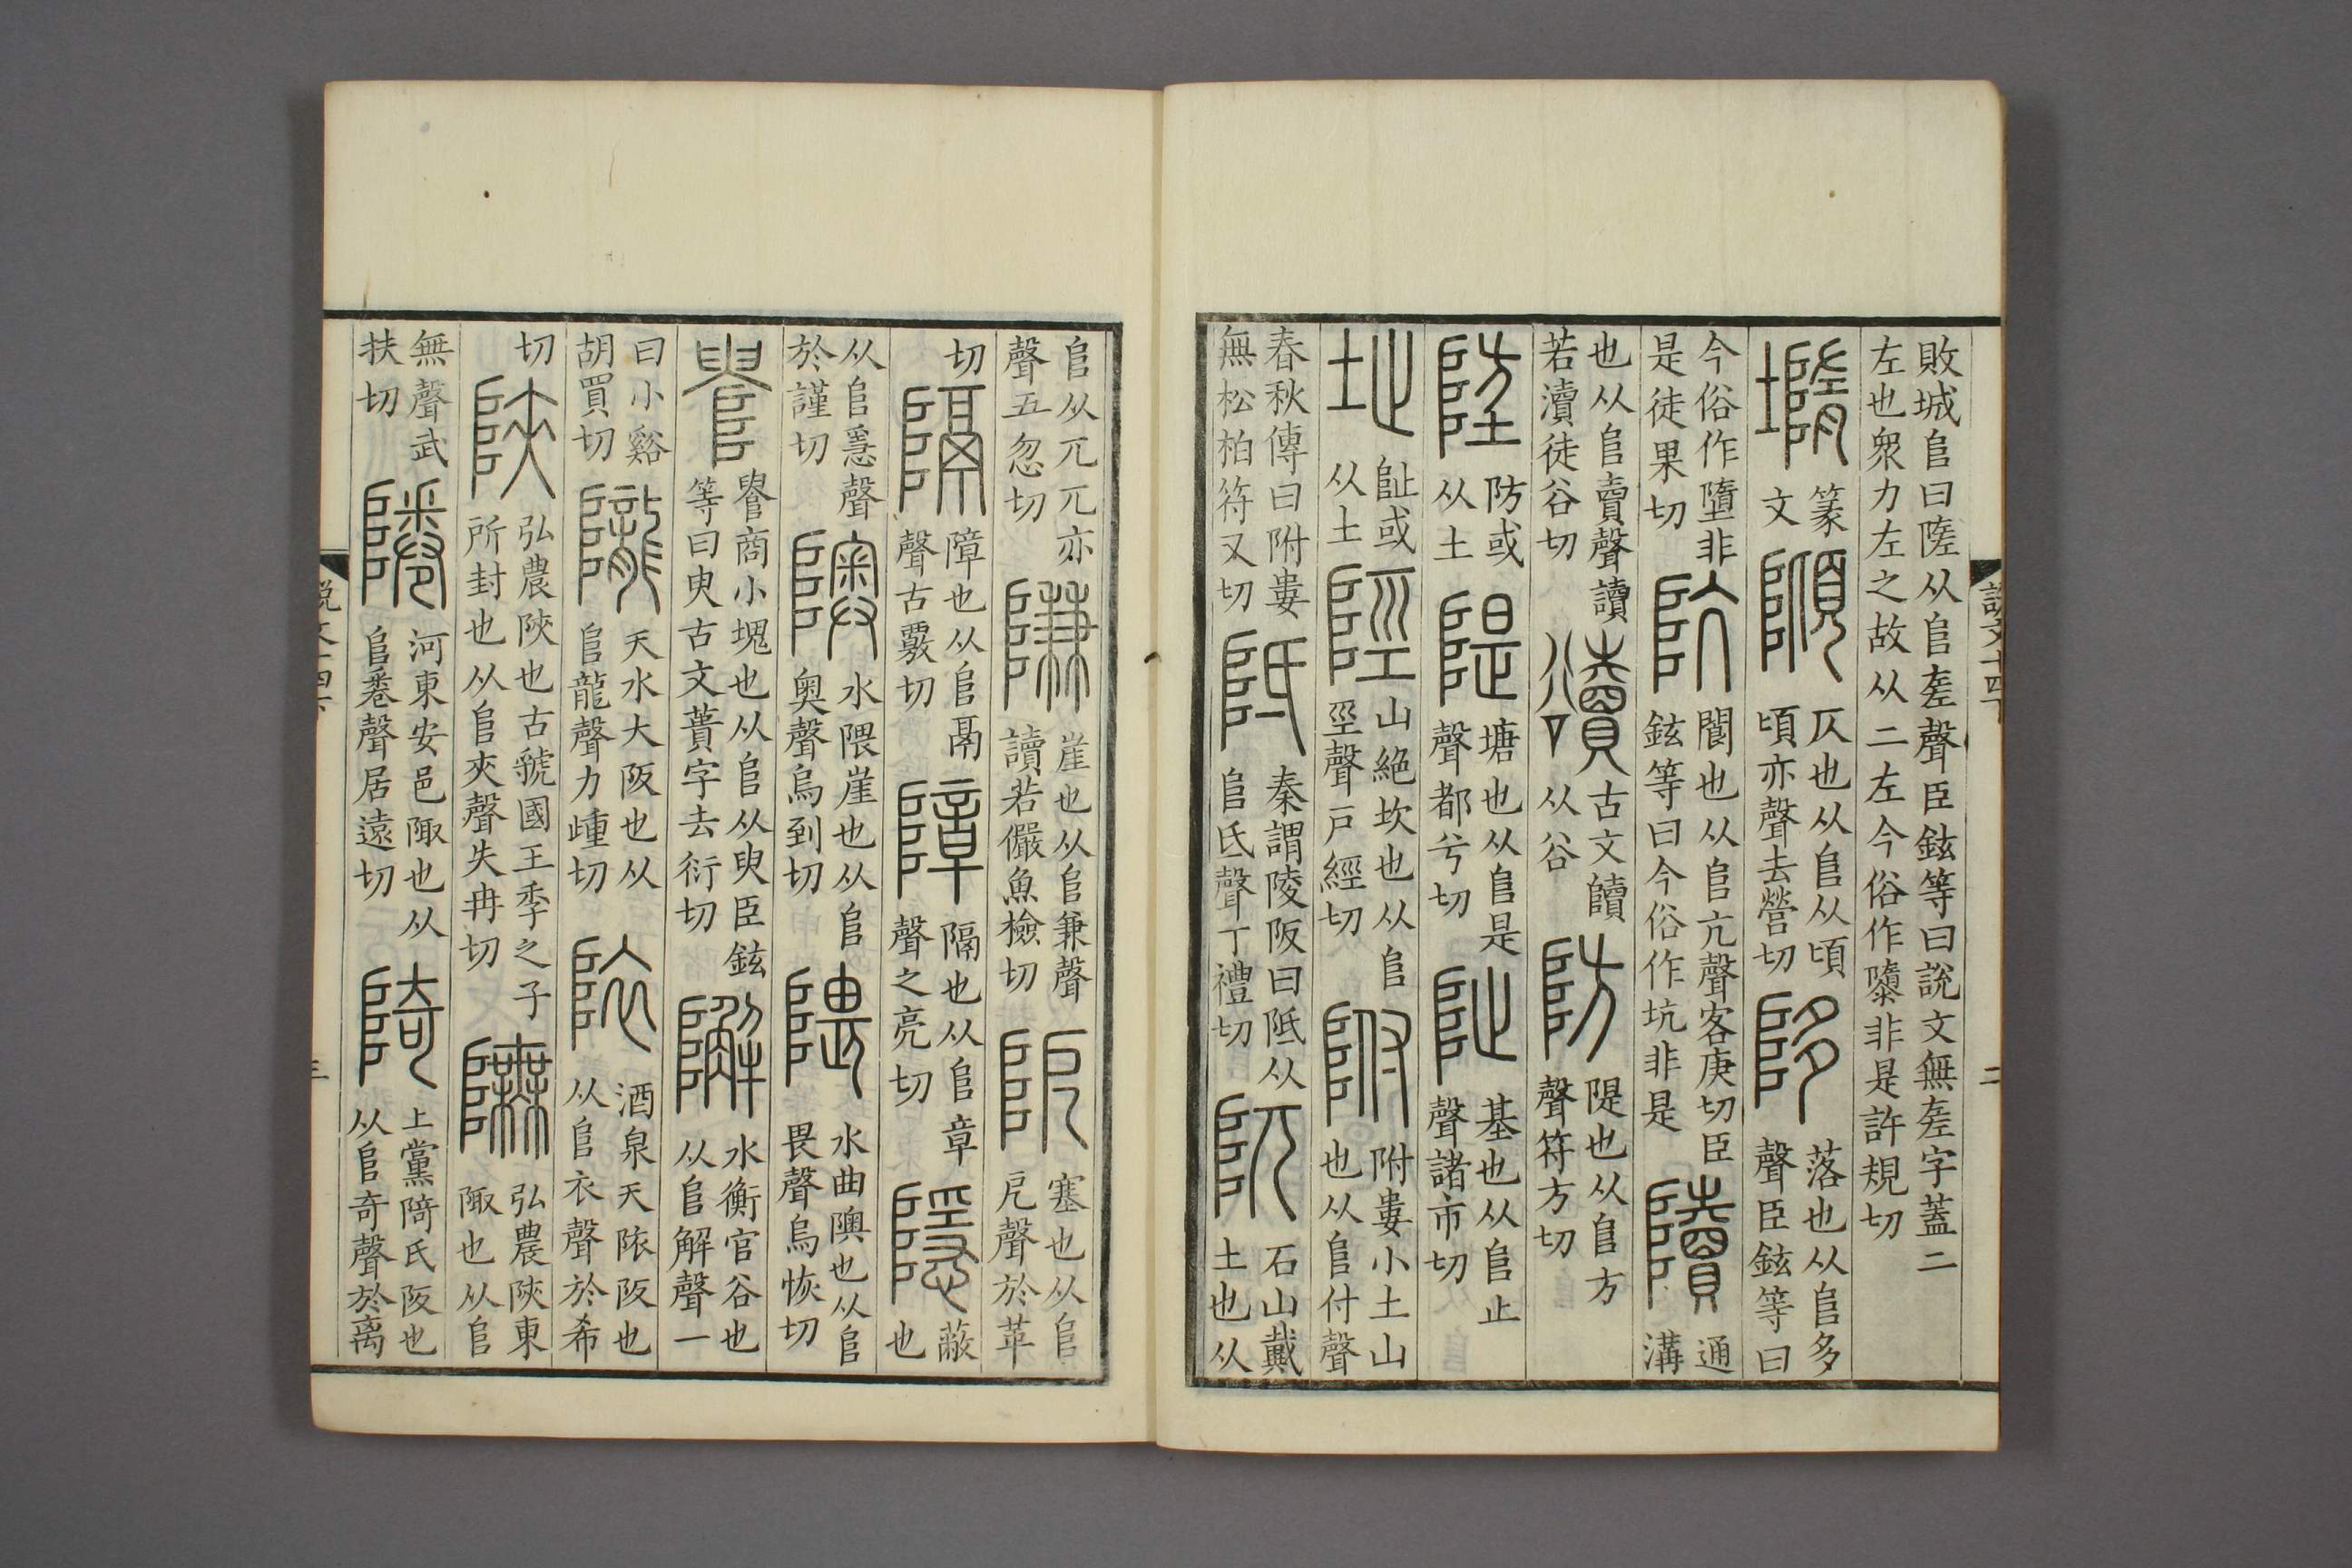 敗城𨸏曰隓从𨸏㢀聲臣鉉等曰說文無㢀字蓋二
左也衆力左之故从二左今俗作隳非是許規切
墮
篆
文
𨻺
仄也从𨸏从頃
頃亦聲去營切
陊
落也从𨸏多
聲臣鉉等曰
今俗作墮非
是徒果切
阬
閬也从𨸏亢聲客庚切臣
鉉等曰今俗作坑非是
𨽍
通
溝
也从𨸏𧶠聲讀
若瀆徒谷切
豄
古文𨽍
从谷
防
隄也从𨸏方
聲符方切
防或
从土
隄
塘也从𨸏是
聲都兮切
阯
基也从𨸏止
聲諸市切
址
阯或
从土
陘
山絶坎也从𨸏
巠聲戶經切
附
附婁小土山
也从𨸏付聲
春秋傳曰附婁
無松柏符又切
阺
秦謂陵阪曰阺从
𨸏氐聲丁禮切
阢
石山戴
土也从
𨸏从兀兀亦
聲五忽切
隒
崖也从𨸏兼聲
讀若儼魚檢切
阸
塞也从𨸏
戹聲於革
切
隔
障也从𨸏鬲
聲古覈切
障
隔也从𨸏章
聲之亮切
隱
蔽
也
从𨸏㥯聲
於謹切
隩
水隈崖也从𨸏
奧聲烏到切
隈
水曲隩也从𨸏
畏聲烏恢切
商小塊也从𨸏从臾臣鉉
等曰臾古文蕢字去衍切
水衡官谷也
从𨸏解聲一
曰小谿
胡買切
隴
天水大阪也从
𨸏龍聲力切
酒泉天阪也
从𨸏衣聲於希
切
陝
弘農陝也古虢國王季之子
所封也从𨸏夾聲失冉切
弘農陝東
陬也从𨸏
無聲武
扶切
河東安邑陬也从
𨸏聲居遠切
陭
上黨陭氏阪也
从𨸏奇聲於离
二
三